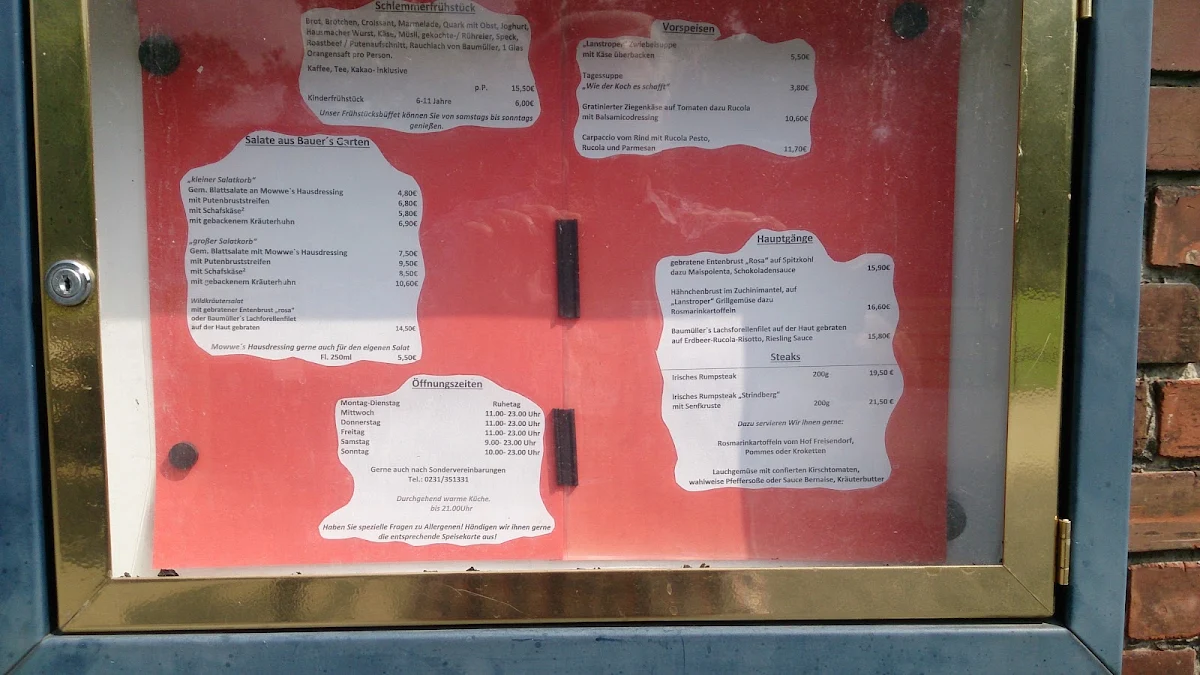 Schlemmerfrühstück
Brot, Brötchen, Croissant, Marmelade, Quark mit Obst, Joghurt,
Hausmacher Wurst, Käse, Müsli, gekochte-/ Rühreier, Speck,
Roastbeef / Putenaufschnitt, Rauchlach von Baumüller, 1 Glas
Orangensaft pro Person.
Kaffee, Tee, Kakao- Inklusive
p.P. 15,50€
Kinderfrühstück 6-11 Jahre 6,00€
Unser Frühstücksbüffet können Sie von samstags bis sonntags
genießen.
Salate aus Bauer´s Garten
„kleiner Salatkorb"
Gem. Blattsalate an Mowwe´s Hausdressing 4,80€
mit Putenbruststreifen 6,80€
mit Schafskäse² 5,80€
mit gebackenem Kräuterhuhn 6,90€
„großer Salatkorb"
Gem. Blattsalate mit Mowwe´s Hausdressing 7,50€
mit Putenbruststreifen 9,50€
mit Schafskäse² 8,50€
mit gebackenem Kräuterhuhn 10,60€
Wildkräutersalat
mit gebratener Entenbrust „rosa"
oder Baumüller´s Lachforellenfilet
auf der Haut gebraten 14,50€
Mowwe´s Hausdressing gerne auch für den eigenen Salat
Fl. 250ml 5,50€
Öffnungszeiten
Montag-Dienstag Ruhetag
Mittwoch 11.00- 23.00 Uhr
Donnerstag 11.00- 23.00 Uhr
Freitag 11.00- 23.00 Uhr
Samstag 9.00- 23.00 Uhr
Sonntag 10.00- 23.00 Uhr
Gerne auch nach Sondervereinbarungen
Tel.: 0231/351331
Durchgehend warme Küche.
bis 21.00Uhr
Haben Sie spezielle Fragen zu Allergenen! Händigen wir ihnen gerne
die entsprechende Speisekarte aus!
Vorspeisen
„Lanstroper" Zwiebelsuppe
mit Käse überbacken 5,50€
Tagessuppe
„Wie der Koch es schafft" 3,80€
Gratinierter Ziegenkäse auf Tomaten dazu Rucola
mit Balsamicodressing 10,60€
Carpaccio vom Rind mit Rucola Pesto,
Rucola und Parmesan 11,70€
Hauptgänge
gebratene Entenbrust „Rosa" auf Spitzkohl
dazu Maispolenta, Schokoladensauce 15,90€
Hähnchenbrust im Zuchinimantel, auf
„Lanstroper" Grillgemüse dazu 16,60€
Rosmarinkartoffeln
Baumüller´s Lachsforellenfilet auf der Haut gebraten
auf Erdbeer-Rucola-Risotto, Riesling Sauce 15,80€
Steaks
Irisches Rumpsteak 200g 19,50 €
Irisches Rumpsteak „Strindberg"
mit Senfkruste 200g 21,50 €
Dazu servieren Wir Ihnen gerne:
Rosmarinkartoffeln vom Hof Freisendorf,
Pommes oder Kroketten
Lauchgemüse mit confierten Kirschtomaten,
wahlweise Pfeffersoße oder Sauce Bernaise, Kräuterbutter